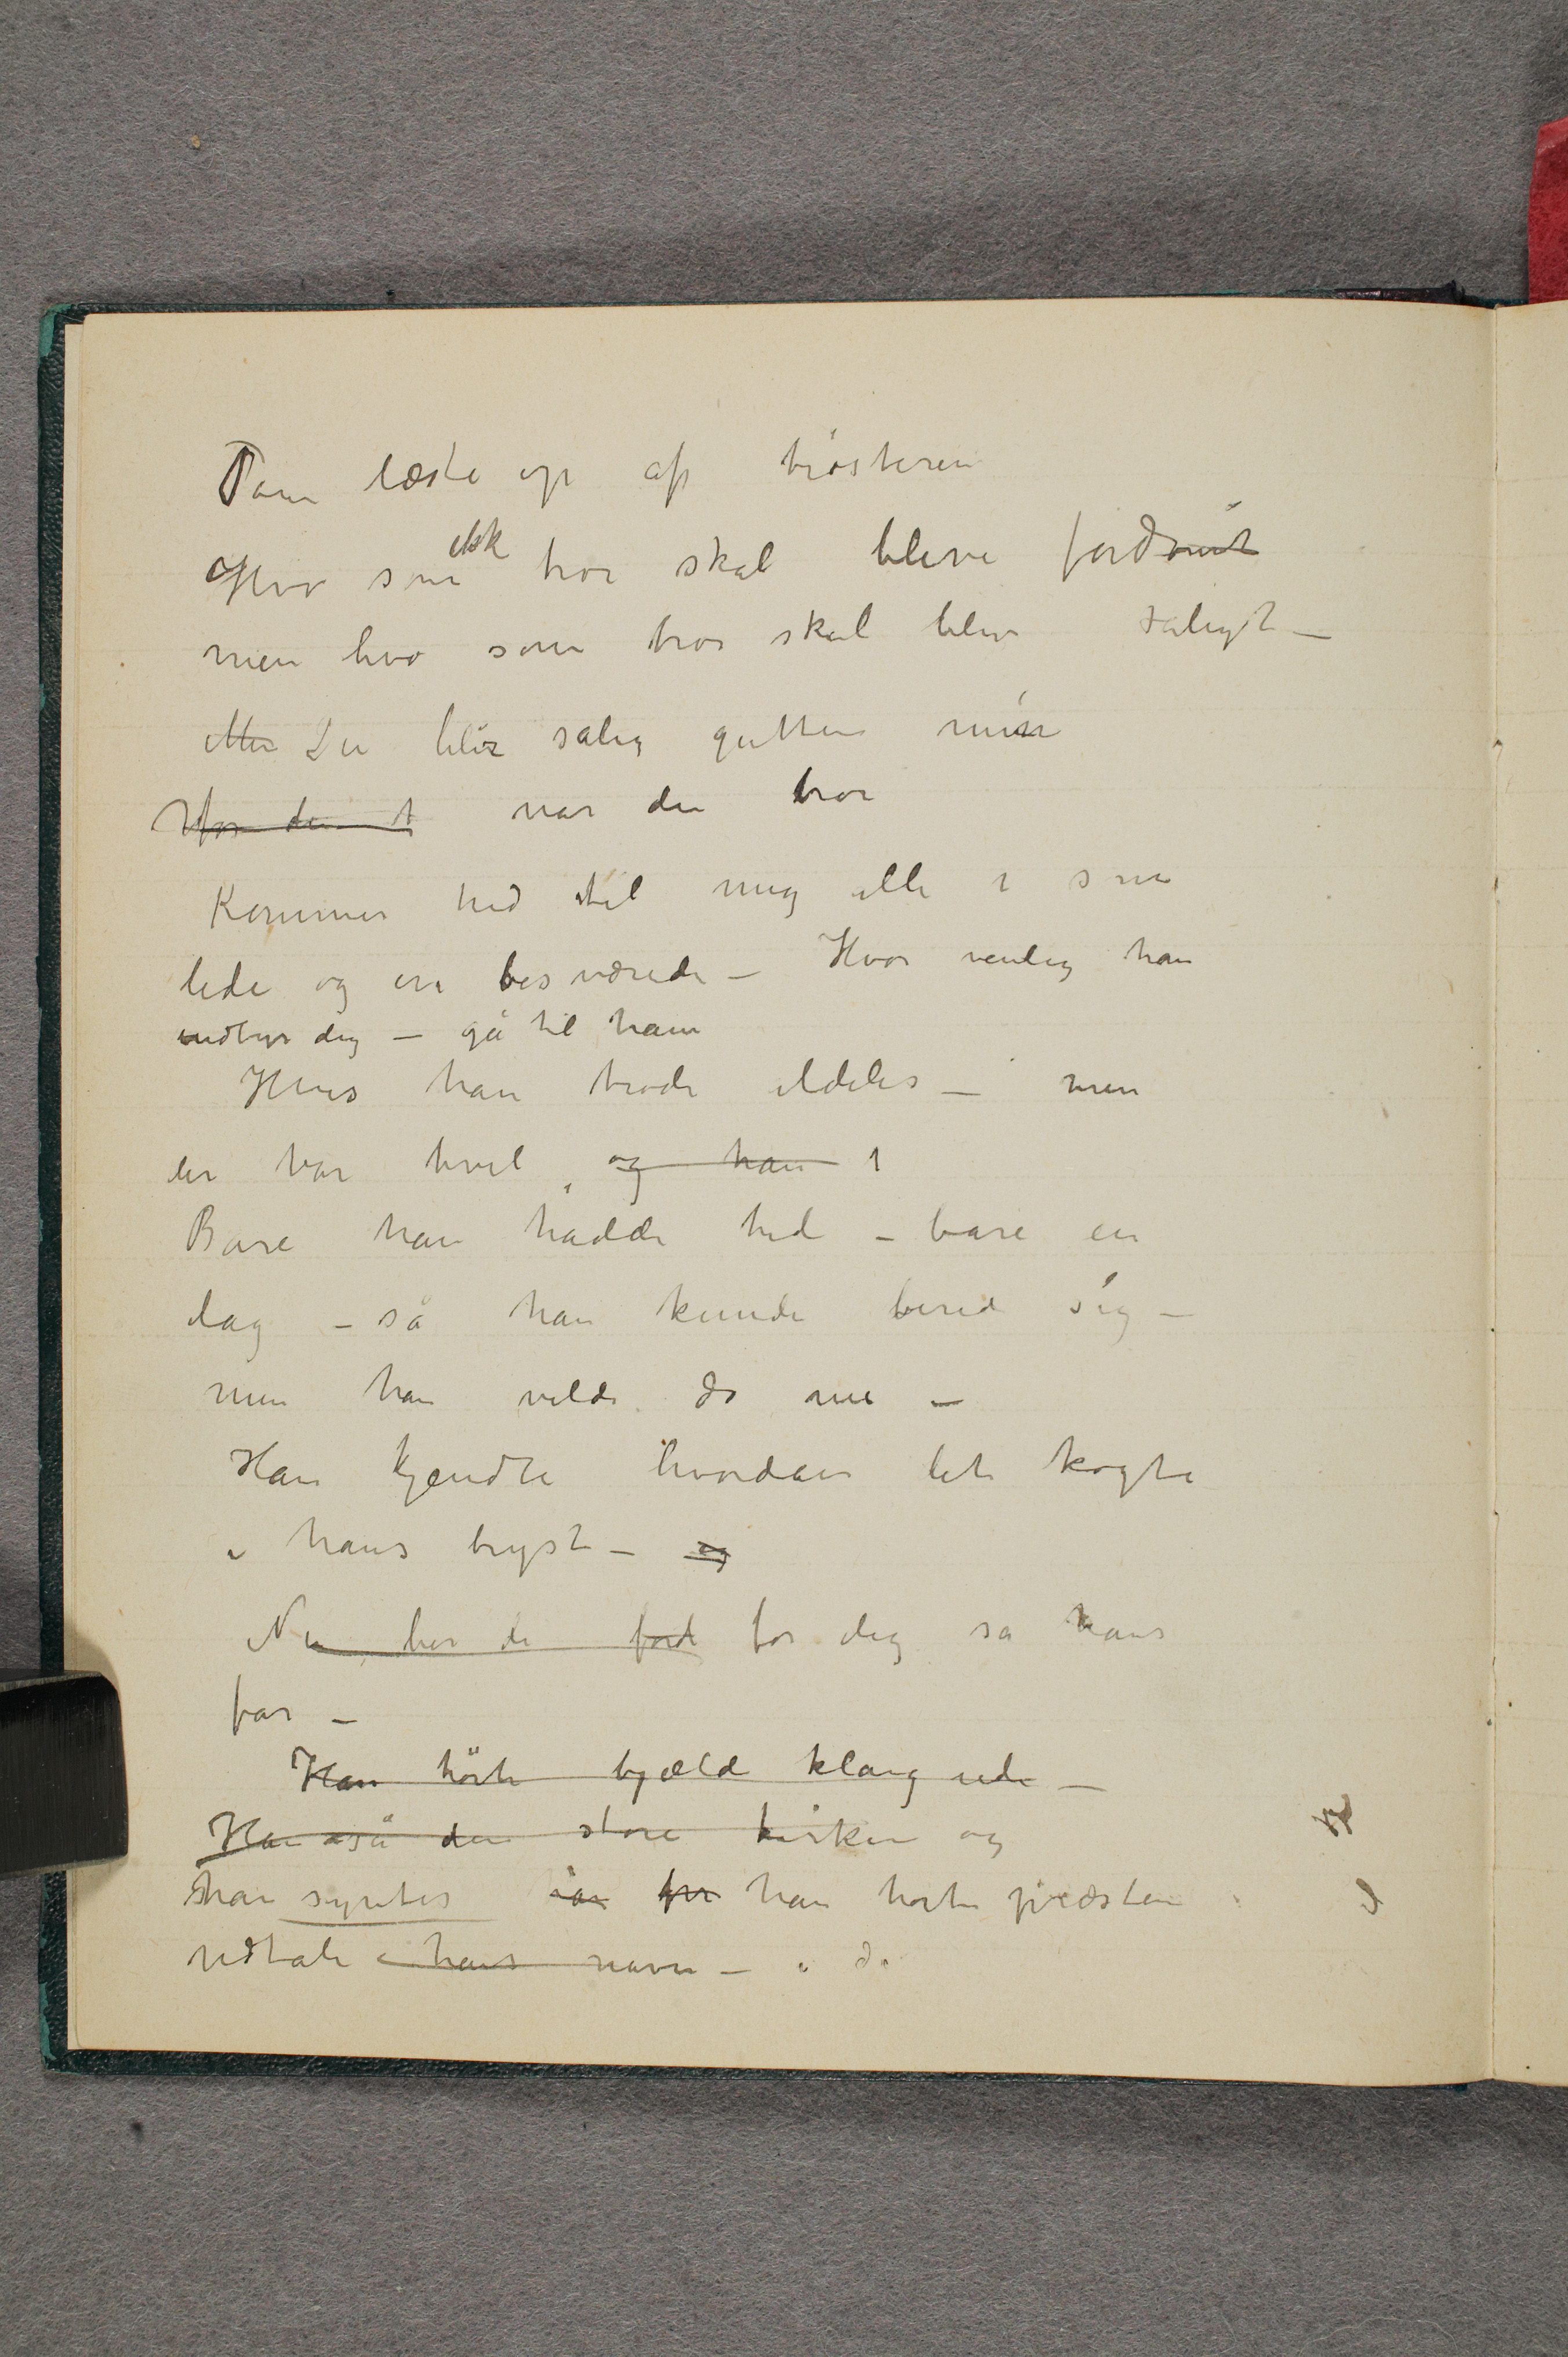 Tante læste op af trösteren
Hvo som ikk tror skal blive fordömt
men hvo som tror skal blive saligt –
Men Du blir salig gutten min
når du tror
Kommer hid til mig alle i som
lide og ere besværede – Hvor venlig han
indbyr dig – gå til ham
Hvis han trode aldeles – men
der var tvil og han
Bare han hadde tid – bare en
dag – så han kunde berede sig –
men han vilde dö nu –
Han kjendte hvordan det kogte
i hans bryst – og
Nu ber de for dig sa hans
far –
Han hörte bjælde klang ude –
Han så den store kirken og
han syntes han hörte præsten
udtale hans navn –